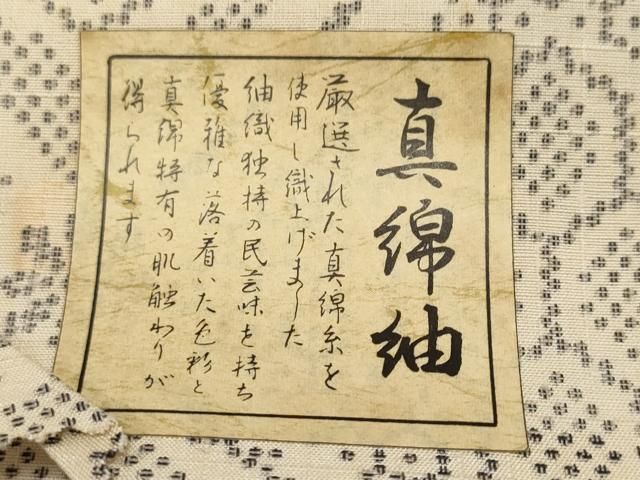 真綿紬
厳選された真綿糸を
使用し織上げました
紬織独特の民芸味を持ち
優雅な落着いた色彩と
真綿特有の肌触わりが
得られます